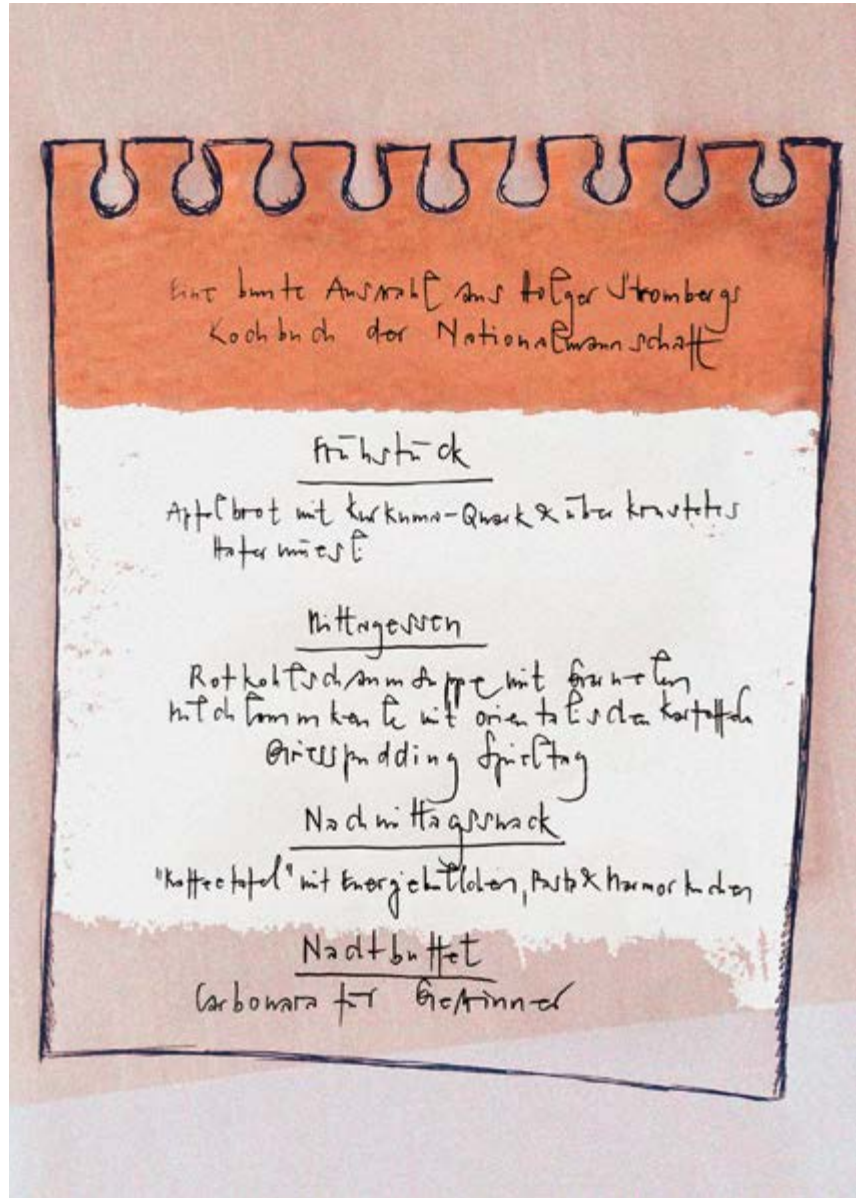 Eine bunte Auswahl aus Holger Strombergs
Kochbuch der Nationalmannschaft
Frühstück
Apfelbrot mit Kurkuma-Quark & überkrustetes
Hafermüesli
Mittagessen
Rotkohlschaumsuppe mit Garnelen
Milchlammkeule mit orientalischen Kartoffeln
Griesspudding Spieltag
Nachmittagssnack
"Kaffeetafel" mit Energiebällchen, Pasta & Marmorkuchen
Nachtbuffet
Carbonara für Gewinner